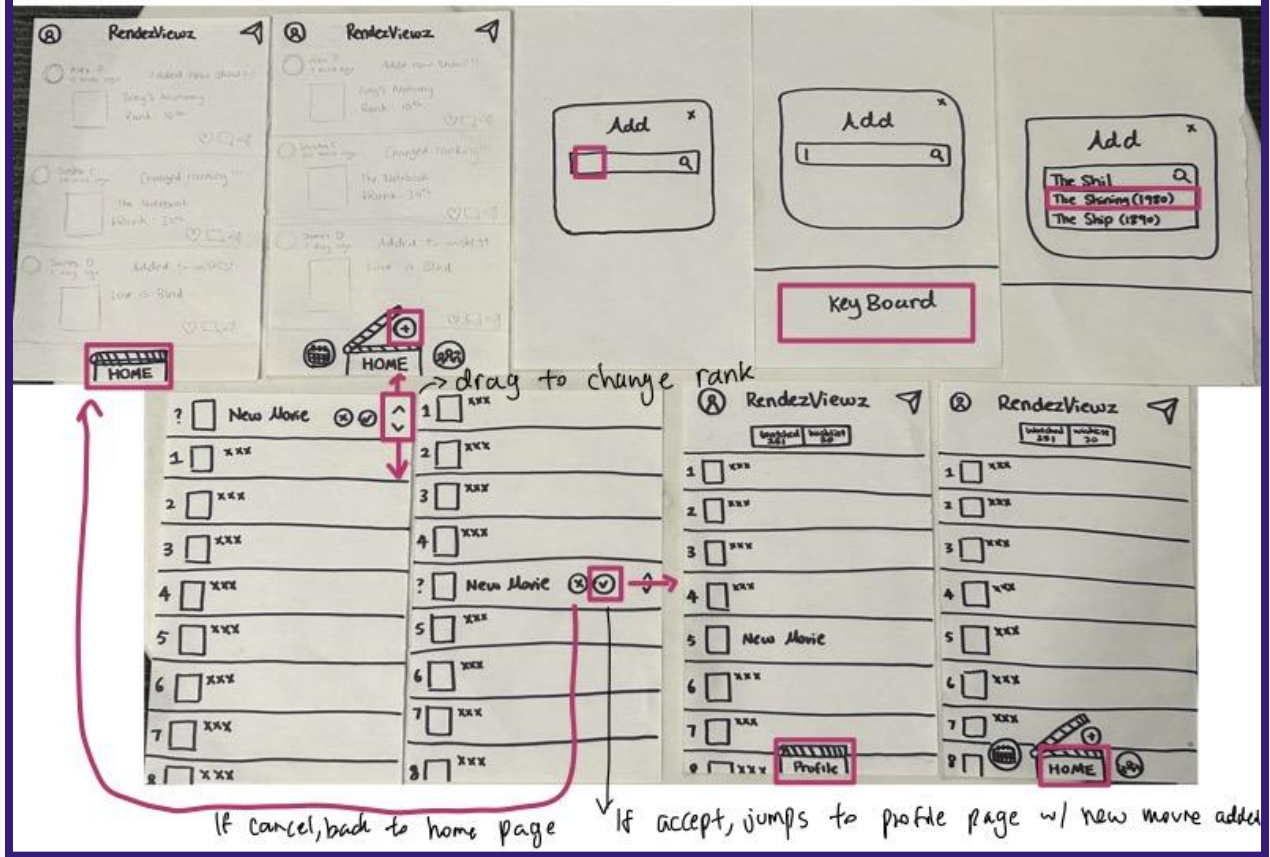 RendezViewz
Alex D.
Added new show!!!
Grey's Anatomy
Rank: 10th
Changed ranking
The Notebook
Rank: 30th
James D.
1 day ago
Added to wishlist
Love is Blind
HOME
RendezViewz
Alex D.
Added new show!!
Grey's Anatomy
Rank: 10th
Changed ranking
The Notebook
Rank: 30th
James D.
1 day ago
Added to wishlist
Love is Blind
+
HOME
Add x
Add x
Add x
The Shil
The Shining (1980)
The Ship (1890)
KeyBoard
drag to change rank
? New Movie
1 xxx
2 xxx
3 xxx
4 xxx
5 xxx
6 xxx
7 xxx
8 xxx
1 xxx
2 xxx
3 xxx
4 xxx
? New Movie
5 xxx
6 xxx
7 xxx
8 xxx
RendezViewz
Watched wishlist
251 20
1 xxx
2 xxx
3 xxx
4 xxx
5 New Movie
6 xxx
7 xxx
xxx
Profile
RendezViewz
Watched wishlist
251 20
1 xxx
2 xxx
3 xxx
4 xxx
5 xxx
6 xxx
7 xxx
8
+
HOME
If cancel, back to home page
If accept, jumps to profile page w/ new movie added